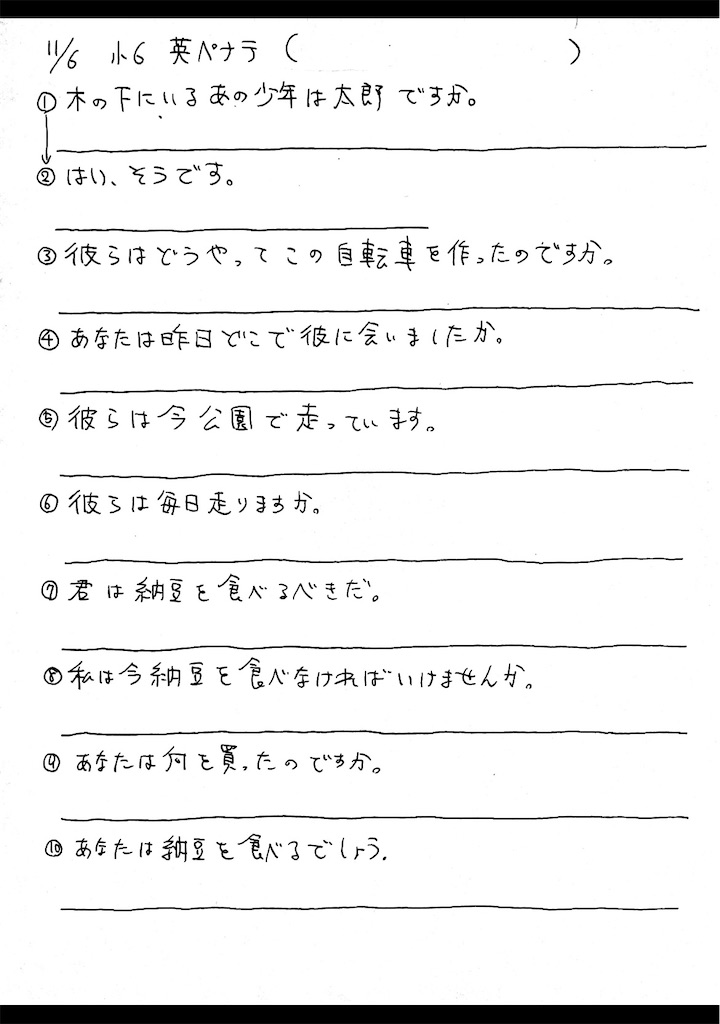 11/6 小6 英ペナテ ( )
① 木の下にいるあの少年は太郎ですか。
② はい、そうです。
③ 彼らはどうやってこの自転車を作ったのですか。
④ あなたは昨日どこで彼に会いましたか。
⑤ 彼らは今公園で走っています。
⑥ 彼らは毎日走りますか。
⑦ 君は納豆を食べるべきだ。
⑧ 私は今納豆を食べなければいけませんか。
⑨ あなたは何を買ったのですか。
⑩ あなたは納豆を食べるでしょう.